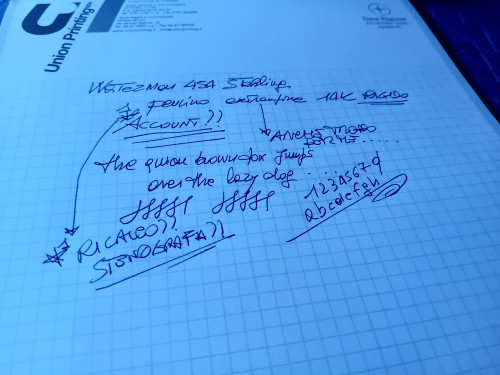 Union Printing
WATERMAN 45A Sterling
pennino extrafine 14K RIGIDO
ACCOUNT??
ANCHE MOLTO
the quick brown fox jumps
over the lazy dog.....
1234567 9
abcdefgh
RICALCO??
STENOGRAFIA??